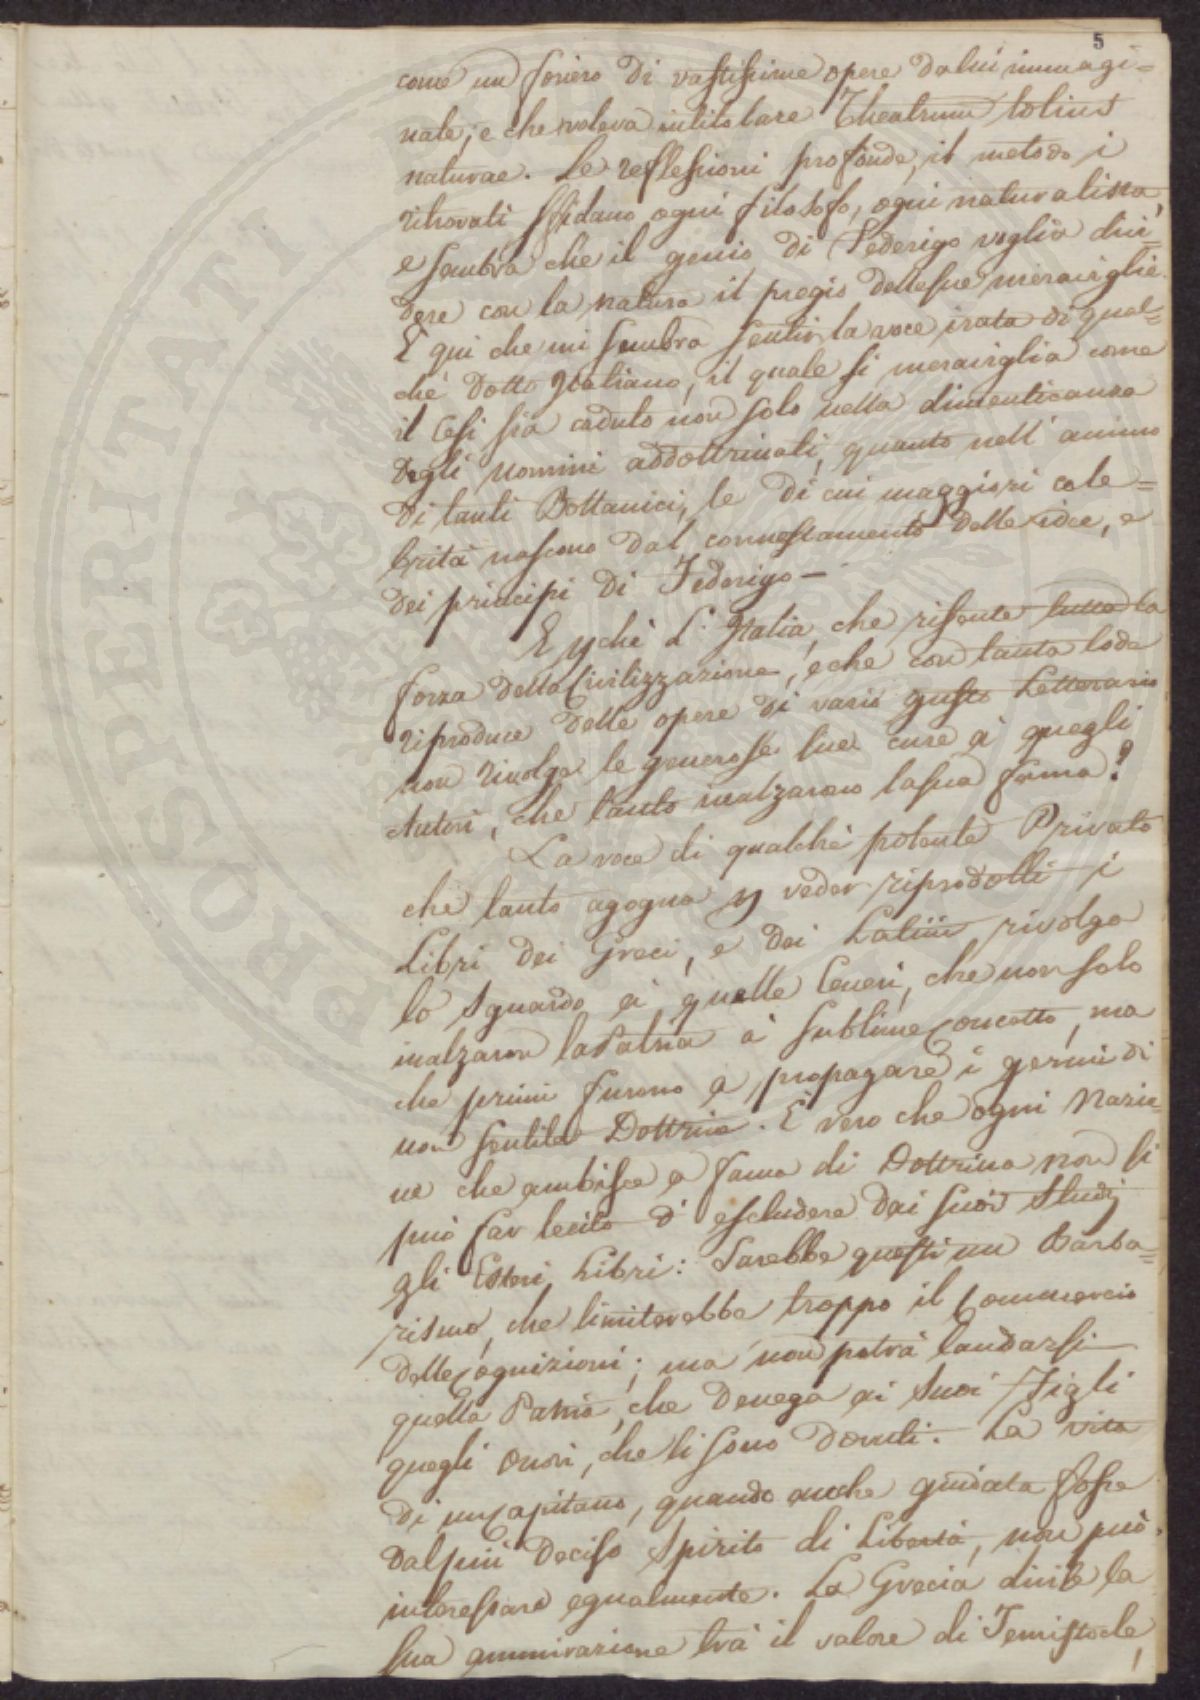 5
come un foriero di vastissime opere da lui immagi=
nate, e che voleva intitolare Theatrum totius
naturae. Le reflessioni profonde, il metodo i
ritrovati sfidano ogni filosofo, ogni naturalista,
e sembra che il genio di Federigo voglia divi=
dere con la natura il pregio delle sue meraviglie.
E qui che mi sembra sentir la voce irata di qual=
che dotto Italiano, il quale si meraviglia come
il Cesi sia caduto non solo nella dimenticanza
degli uomini addottrinati, quanto nell' animo
di tanti Bottanici, le di cui maggiori cele=
brità nascono dal connestamento delle idee, e
dei principi di Federigo —
E pchè L' Italia, che risente tutta la
forza della Civilizzazione, e che con tanta loda
riproduce delle opere di vario gusto Letterario
non rivolge le generose sue cure à quegli
Autori, che tanto inalzarono la sua fama?
La voce di qualche potente Privato
che tanto agogna p veder riprodotti i
Libri dei Greci, e dei Latini rivolga
lo sguardo à quelle Ceneri, che non solo
inalzaron la Patria à sublime concetto, ma
che primi furono a propagare i germi di
non sentita Dottrina. È vero che ogni Nazio=
ne che ambisce a fama di Dottrina non si
può far lecito d' escludere dai suoi Studj
gli Esteri Libri: Sarebbe questi un Barba=
rismo, che limiterebbe troppo il Commercio
delle Cognizioni; ma non potrà laudarsi
quella Patria, che denega ai suoi Figli
quegli onori, che li sono dovuti. La vita
di un Capitano, quando anche guidata fosse
dal più deciso Spirito di Libertà, non può
interessare egualmente. La Grecia divise la
sua ammirazione trà il valore di Temistocle,